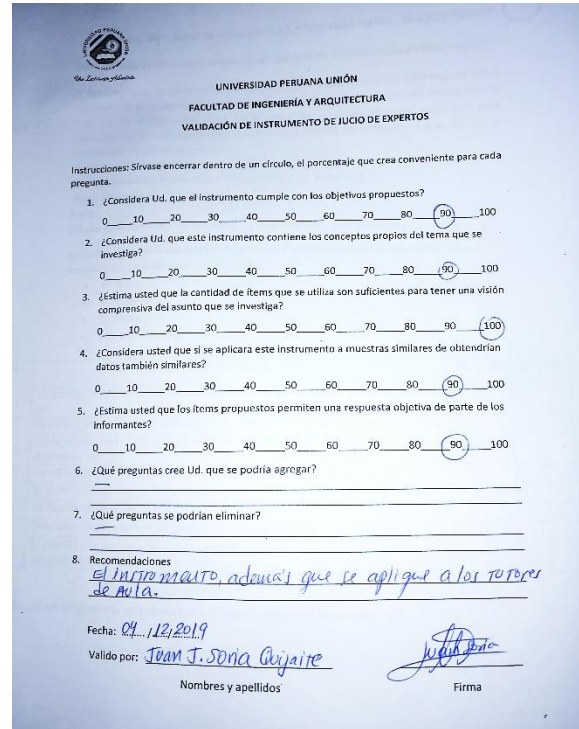 UNIVERSIDAD PERUANA UNIÓN
Una Institución Adventista
UNIVERSIDAD PERUANA UNIÓN
FACULTAD DE INGENIERÍA Y ARQUITECTURA
VALIDACIÓN DE INSTRUMENTO DE JUCIO DE EXPERTOS
Instrucciones: Sírvase encerrar dentro de un círculo, el porcentaje que crea conveniente para cada
pregunta.
1. ¿Considera Ud. que el instrumento cumple con los objetivos propuestos?
0____10____20____30____40____50____60____70____80____90____100
2. ¿Considera Ud. que este instrumento contiene los conceptos propios del tema que se
investiga?
0____10____20____30____40____50____60____70____80____90____100
3. ¿Estima usted que la cantidad de ítems que se utiliza son suficientes para tener una visión
comprensiva del asunto que se investiga?
0____10____20____30____40____50____60____70____80____90____100
4. ¿Considera usted que si se aplicara este instrumento a muestras similares de obtendrían
datos también similares?
0____10____20____30____40____50____60____70____80____90____100
5. ¿Estima usted que los ítems propuestos permiten una respuesta objetiva de parte de los
informantes?
0____10____20____30____40____50____60____70____80____90____100
6. ¿Qué preguntas cree Ud. que se podría agregar?
7. ¿Qué preguntas se podrían eliminar?
8. Recomendaciones
El instromento, además que se aplique a los tutores
de Aula.
Fecha: 04 / 12 / 2019
Valido por: Juan J. Soria Quijaite
Nombres y apellidos
Firma